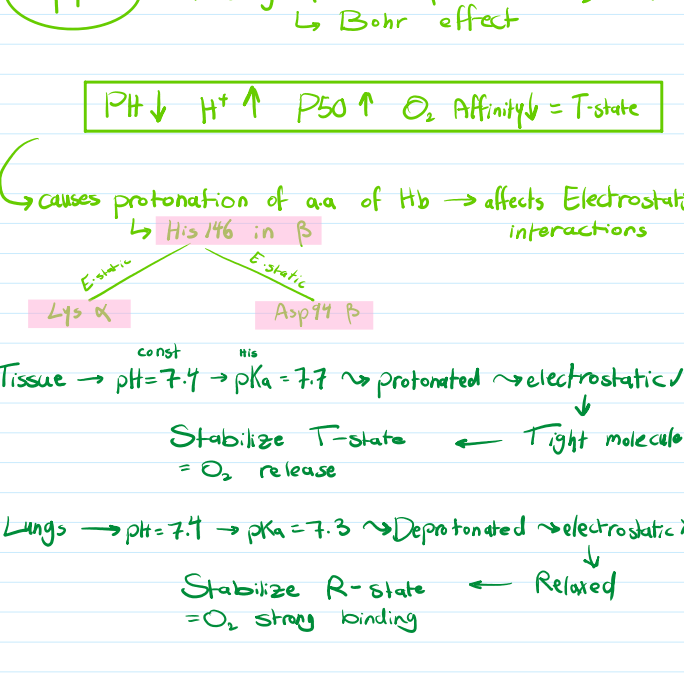 ↳ Bohr effect
PH↓ H⁺↑ P50↑ O₂ Affinity↓ = T-state
↳ causes protonation of a.a of Hb → affects Electrostat
↳ His 146 in β interactions
E.static E.static
Lys α Asp 94 β
const His
Tissue → pH = 7.4 → pKa = 7.7 ⤳ protonated ⤳ electrostatic ✓
↓
Stabilize T-state ← Tight molecule
= O₂ release
Lungs → pH = 7.4 → pKa = 7.3 ⤳ Deprotonated ⤳ electrostatic
↓
Stabilize R-state ← Relaxed
= O₂ strong binding